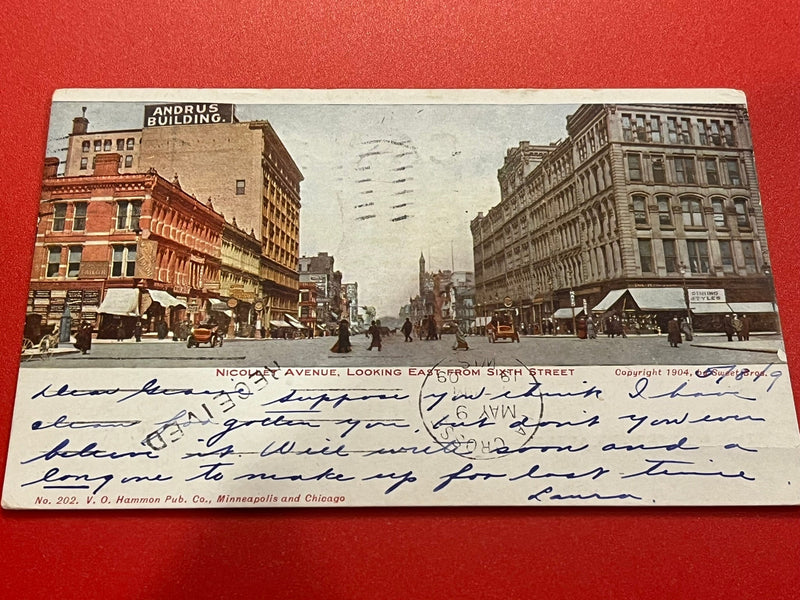 ANDRUS
BUILDING.
DINING
STYLES
NICOLLET AVENUE, LOOKING EAST FROM SIXTH STREET
COPYRIGHT 1904, by Sweet Bros.
RECEIVED
MAY 9
Dear suppose you think I have
clean gotten you, but don't you ever
believe it. Will write soon and a
long one to make up for last time
Laura.
No. 202. V. O. HAMMON PUB. CO., MINNEAPOLIS AND CHICAGO